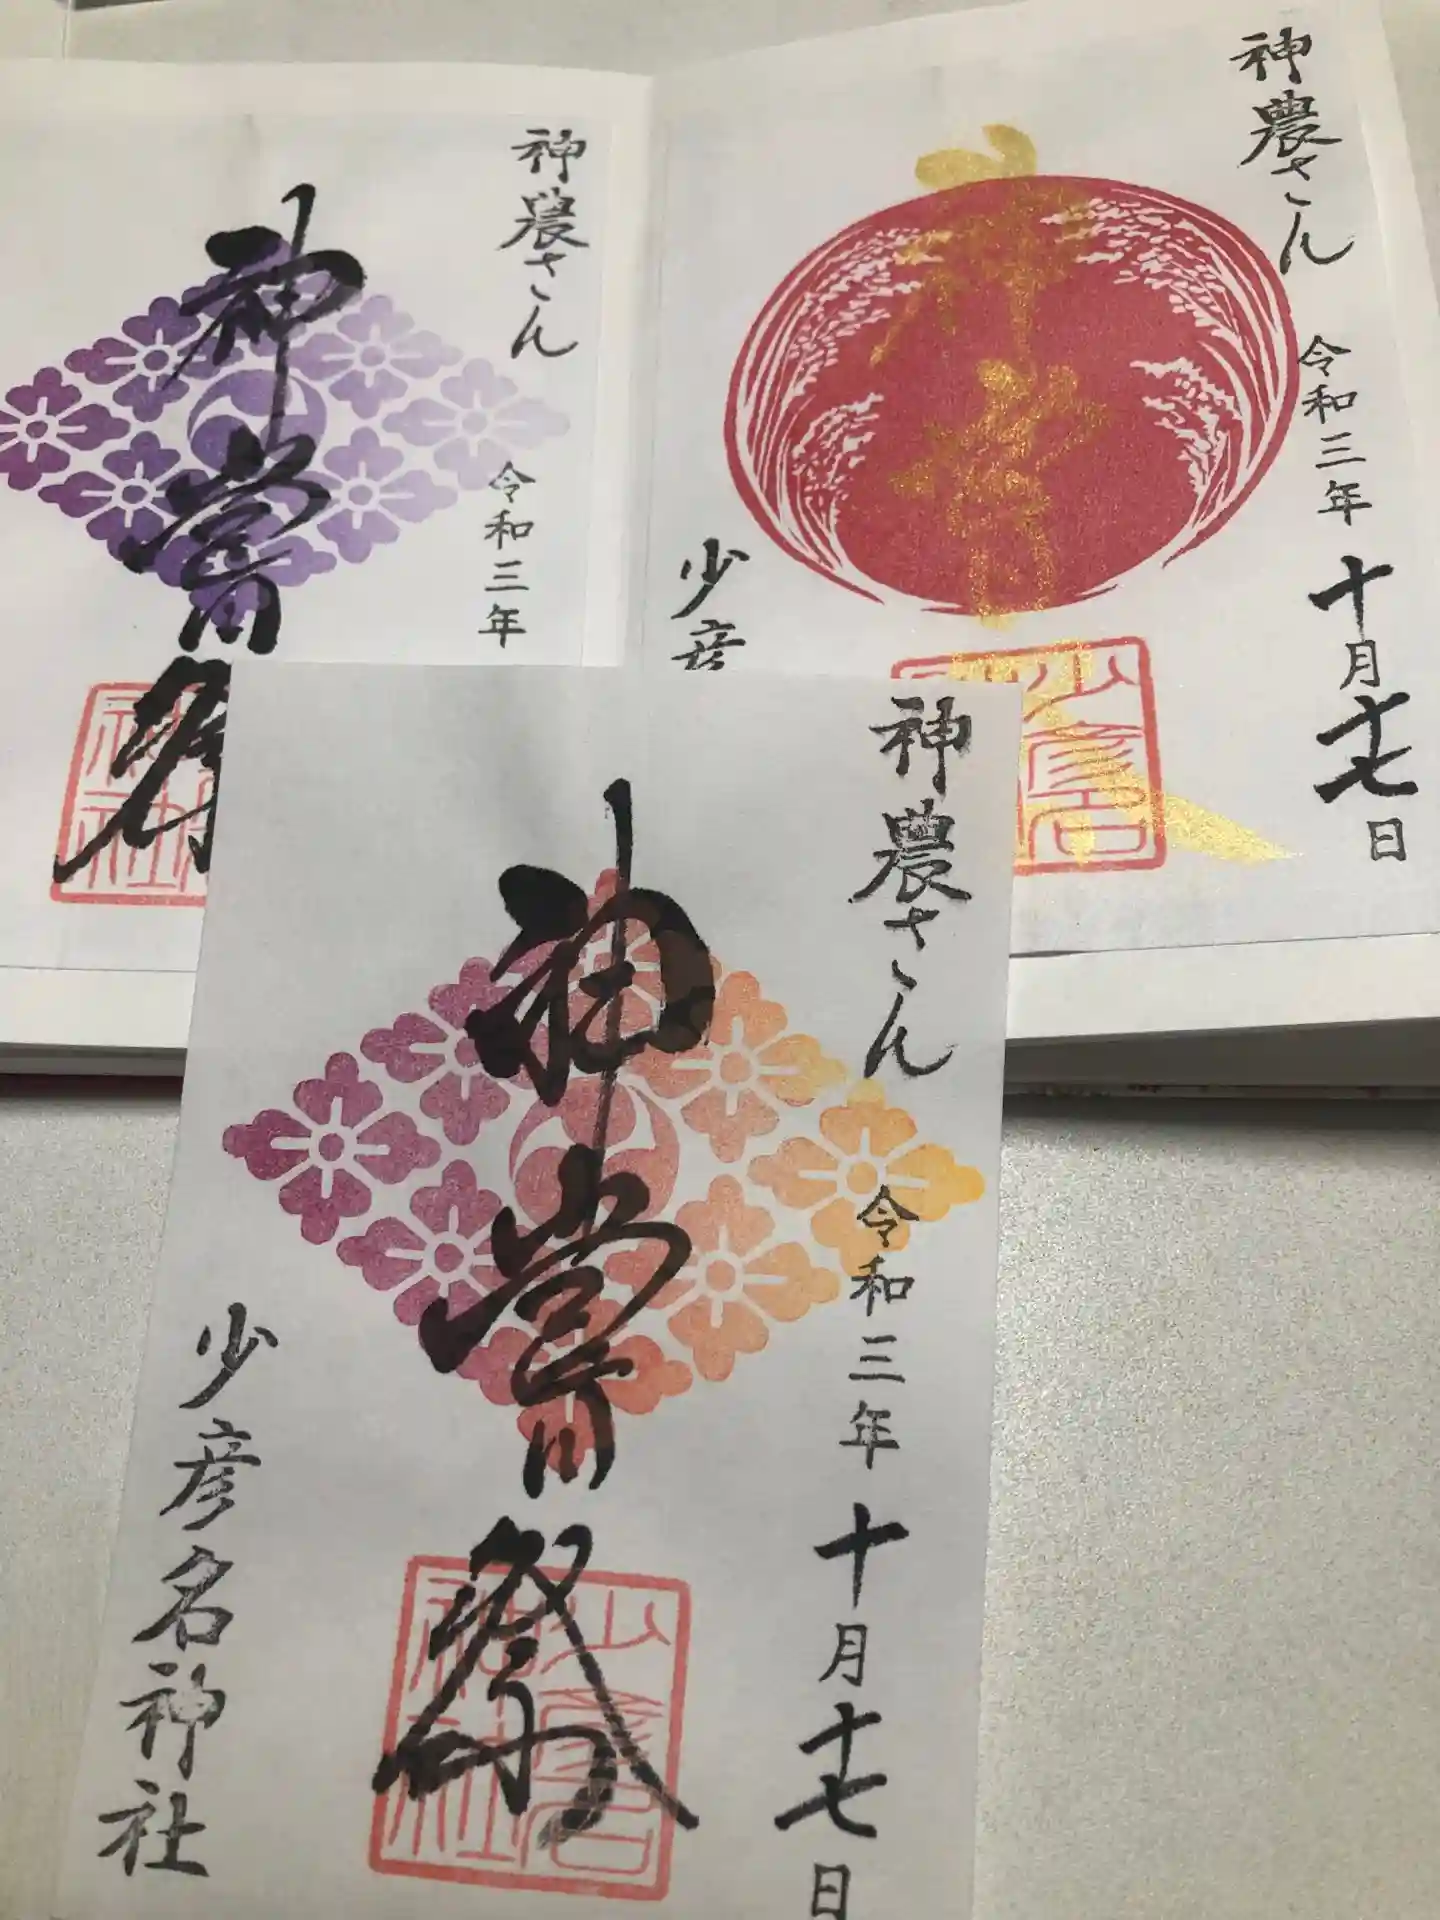 神農さん
令和三年
十月十七日
少彦
少彦名
神農さん
令和三年
神嘗祭
神社
神農さん
令和三年
十月十七日
神嘗祭
少彦名神社
少彦名神社